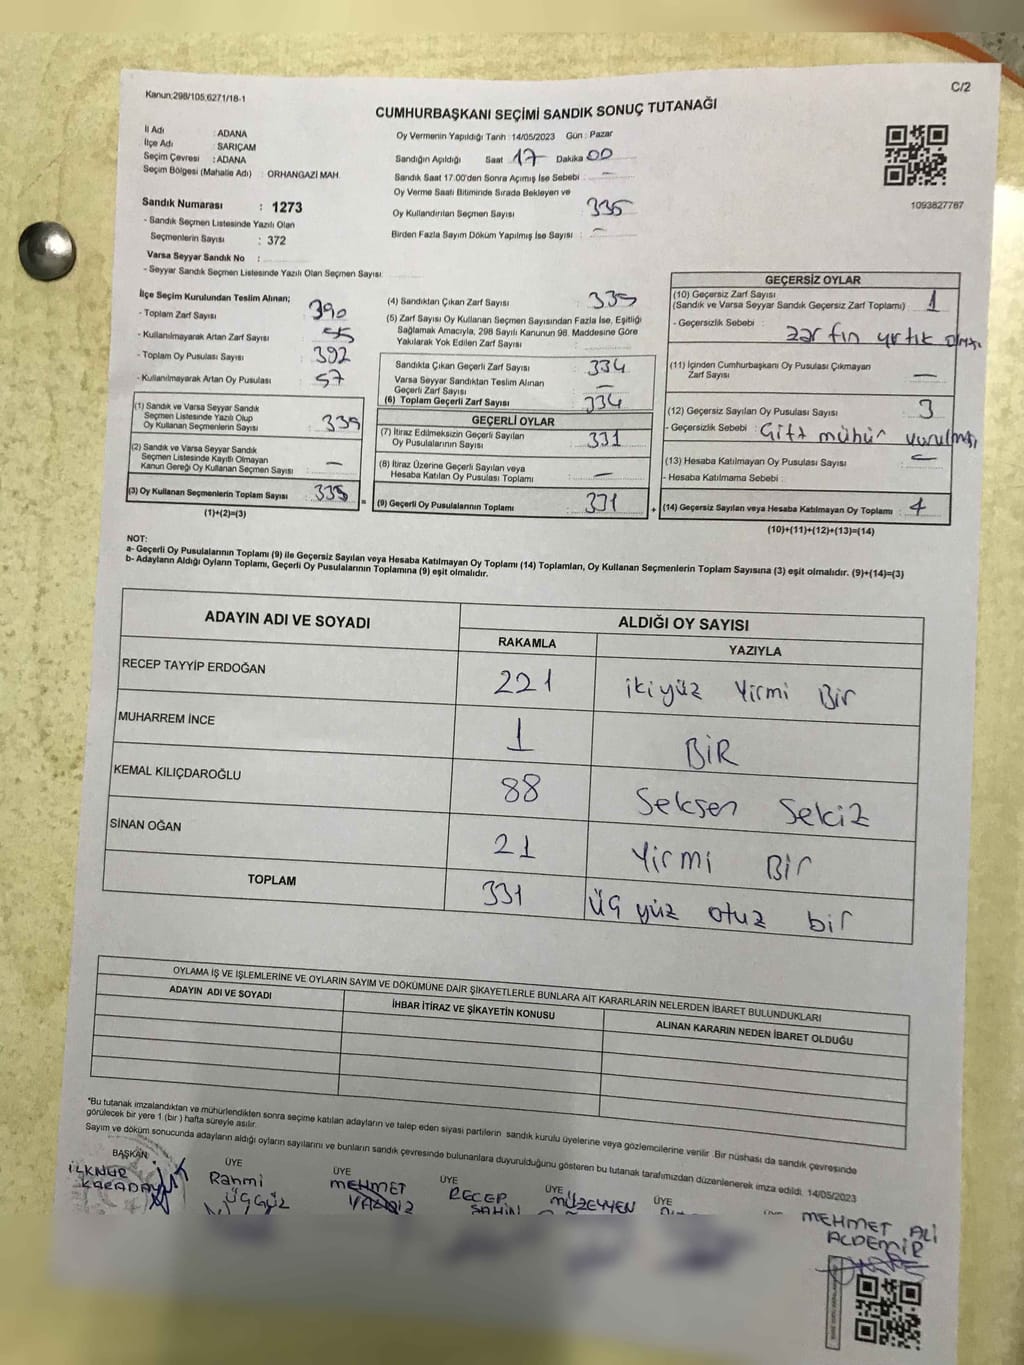 Kanun:298/105,6271/18-1
C/2
CUMHURBAŞKANI SEÇİMİ SANDIK SONUÇ TUTANAĞI
İl Adı : ADANA
İlçe Adı : SARIÇAM
Seçim Çevresi : ADANA
Seçim Bölgesi (Mahalle Adı) : ORHANGAZİ MAH.
Sandık Numarası : 1273
- Sandık Seçmen Listesinde Yazılı Olan
Seçmenlerin Sayısı : 372
Varsa Seyyar Sandık No :
- Seyyar Sandık Seçmen Listesinde Yazılı Olan Seçmen Sayısı:
Oy Vermenin Yapıldığı Tarih :14/05/2023 Gün : Pazar
Sandığın Açıldığı Saat 17 Dakika 00
Sandık Saat 17.00'den Sonra Açımış İse Sebebi : –
Oy Verme Saati Bitiminde Sırada Bekleyen ve
Oy Kullandırılan Seçmen Sayısı 335
Birden Fazla Sayım Döküm Yapılmış İse Sayısı : –
1093827787
İlçe Seçim Kurulundan Teslim Alınan;
- Toplam Zarf Sayısı 390
- Kullanılmayarak Artan Zarf Sayısı 55
- Toplam Oy Pusulası Sayısı 392
- Kullanılmayarak Artan Oy Pusulası 57
(1) Sandık ve Varsa Seyyar Sandık
Seçmen Listesinde Yazılı Olup
Oy Kullanan Seçmenlerin Sayısı 335
(2) Sandık ve Varsa Seyyar Sandık
Seçmen Listesinde Kayıtlı Olmayan
Kanun Gereği Oy Kullanan Seçmen Sayısı –
(3) Oy Kullanan Seçmenlerin Toplam Sayısı 335 =
(1)+(2)=(3)
(4) Sandıktan Çıkan Zarf Sayısı 335
(5) Zarf Sayısı Oy Kullanan Seçmen Sayısından Fazla İse, Eşitliği
Sağlamak Amacıyla, 298 Sayılı Kanunun 98. Maddesine Göre
Yakılarak Yok Edilen Zarf Sayısı
Sandıkta Çıkan Geçerli Zarf Sayısı 334
Varsa Seyyar Sandıktan Teslim Alınan
Geçerli Zarf Sayısı –
(6) Toplam Geçerli Zarf Sayısı 334
GEÇERLİ OYLAR
(7) İtiraz Edilmeksizin Geçerli Sayılan
Oy Pusulalarının Sayısı 331
(8) İtiraz Üzerine Geçerli Sayılan veya
Hesaba Katılan Oy Pusulası Toplamı –
(9) Geçerli Oy Pusulalarının Toplamı 331 +
GEÇERSİZ OYLAR
(10) Geçersiz Zarf Sayısı
(Sandık ve Varsa Seyyar Sandık Geçersiz Zarf Toplamı) 1
- Geçersizlik Sebebi :
zarfın yırtık olması
(11) İçinden Cumhurbaşkanı Oy Pusulası Çıkmayan
Zarf Sayısı –
(12) Geçersiz Sayılan Oy Pusulası Sayısı 3
- Geçersizlik Sebebi : Çift mühür vurulması
(13) Hesaba Katılmayan Oy Pusulası Sayısı –
- Hesaba Katılmama Sebebi :
(14) Geçersiz Sayılan veya Hesaba Katılmayan Oy Toplamı : 4
(10)+(11)+(12)+(13)=(14)
NOT:
a- Geçerli Oy Pusulalarının Toplamı (9) ile Geçersiz Sayılan veya Hesaba Katılmayan Oy Toplamı (14) Toplamları, Oy Kullanan Seçmenlerin Toplam Sayısına (3) eşit olmalıdır. (9)+(14)=(3)
b- Adayların Aldığı Oyların Toplamı, Geçerli Oy Pusulalarının Toplamına (9) eşit olmalıdır.
ADAYIN ADI VE SOYADI
ALDIĞI OY SAYISI
RAKAMLA YAZIYLA
RECEP TAYYİP ERDOĞAN 221 ikiyüz Yirmi Bir
MUHARREM İNCE 1 BİR
KEMAL KILIÇDAROĞLU 88 Seksen Sekiz
SİNAN OĞAN 21 Yirmi Bir
TOPLAM 331 üç yüz otuz bir
OYLAMA İŞ VE İŞLEMLERİNE VE OYLARIN SAYIM VE DÖKÜMÜNE DAİR ŞİKAYETLERLE BUNLARA AİT KARARLARIN NELERDEN İBARET BULUNDUKLARI
ADAYIN ADI VE SOYADI
İHBAR İTİRAZ VE ŞİKAYETİN KONUSU
ALINAN KARARIN NEDEN İBARET OLDUĞU
"Bu tutanak imzalandıktan ve mühürlendikten sonra seçime katılan adayların ve talep eden siyasi partilerin sandık kurulu üyelerine veya gözlemcilerine verilir. Bir nüshası da sandık çevresinde
görülecek bir yere 1 (bir) hafta süreyle asılır.
Sayım ve döküm sonucunda adayların aldığı oyların sayılarını ve bunların sandık çevresinde bulunanlara duyurulduğunu gösteren bu tutanak tarafımızdan düzenlenerek imza edildi. 14/05/2023
BAŞKAN ÜYE ÜYE ÜYE ÜYE ÜYE
İLKNUR KARADAY
Rahmi ÜÇGÜZ
MEHMET
RECEP ŞAHİN
MÜZEYYEN
MEHMET ALİ
ALDEMİR